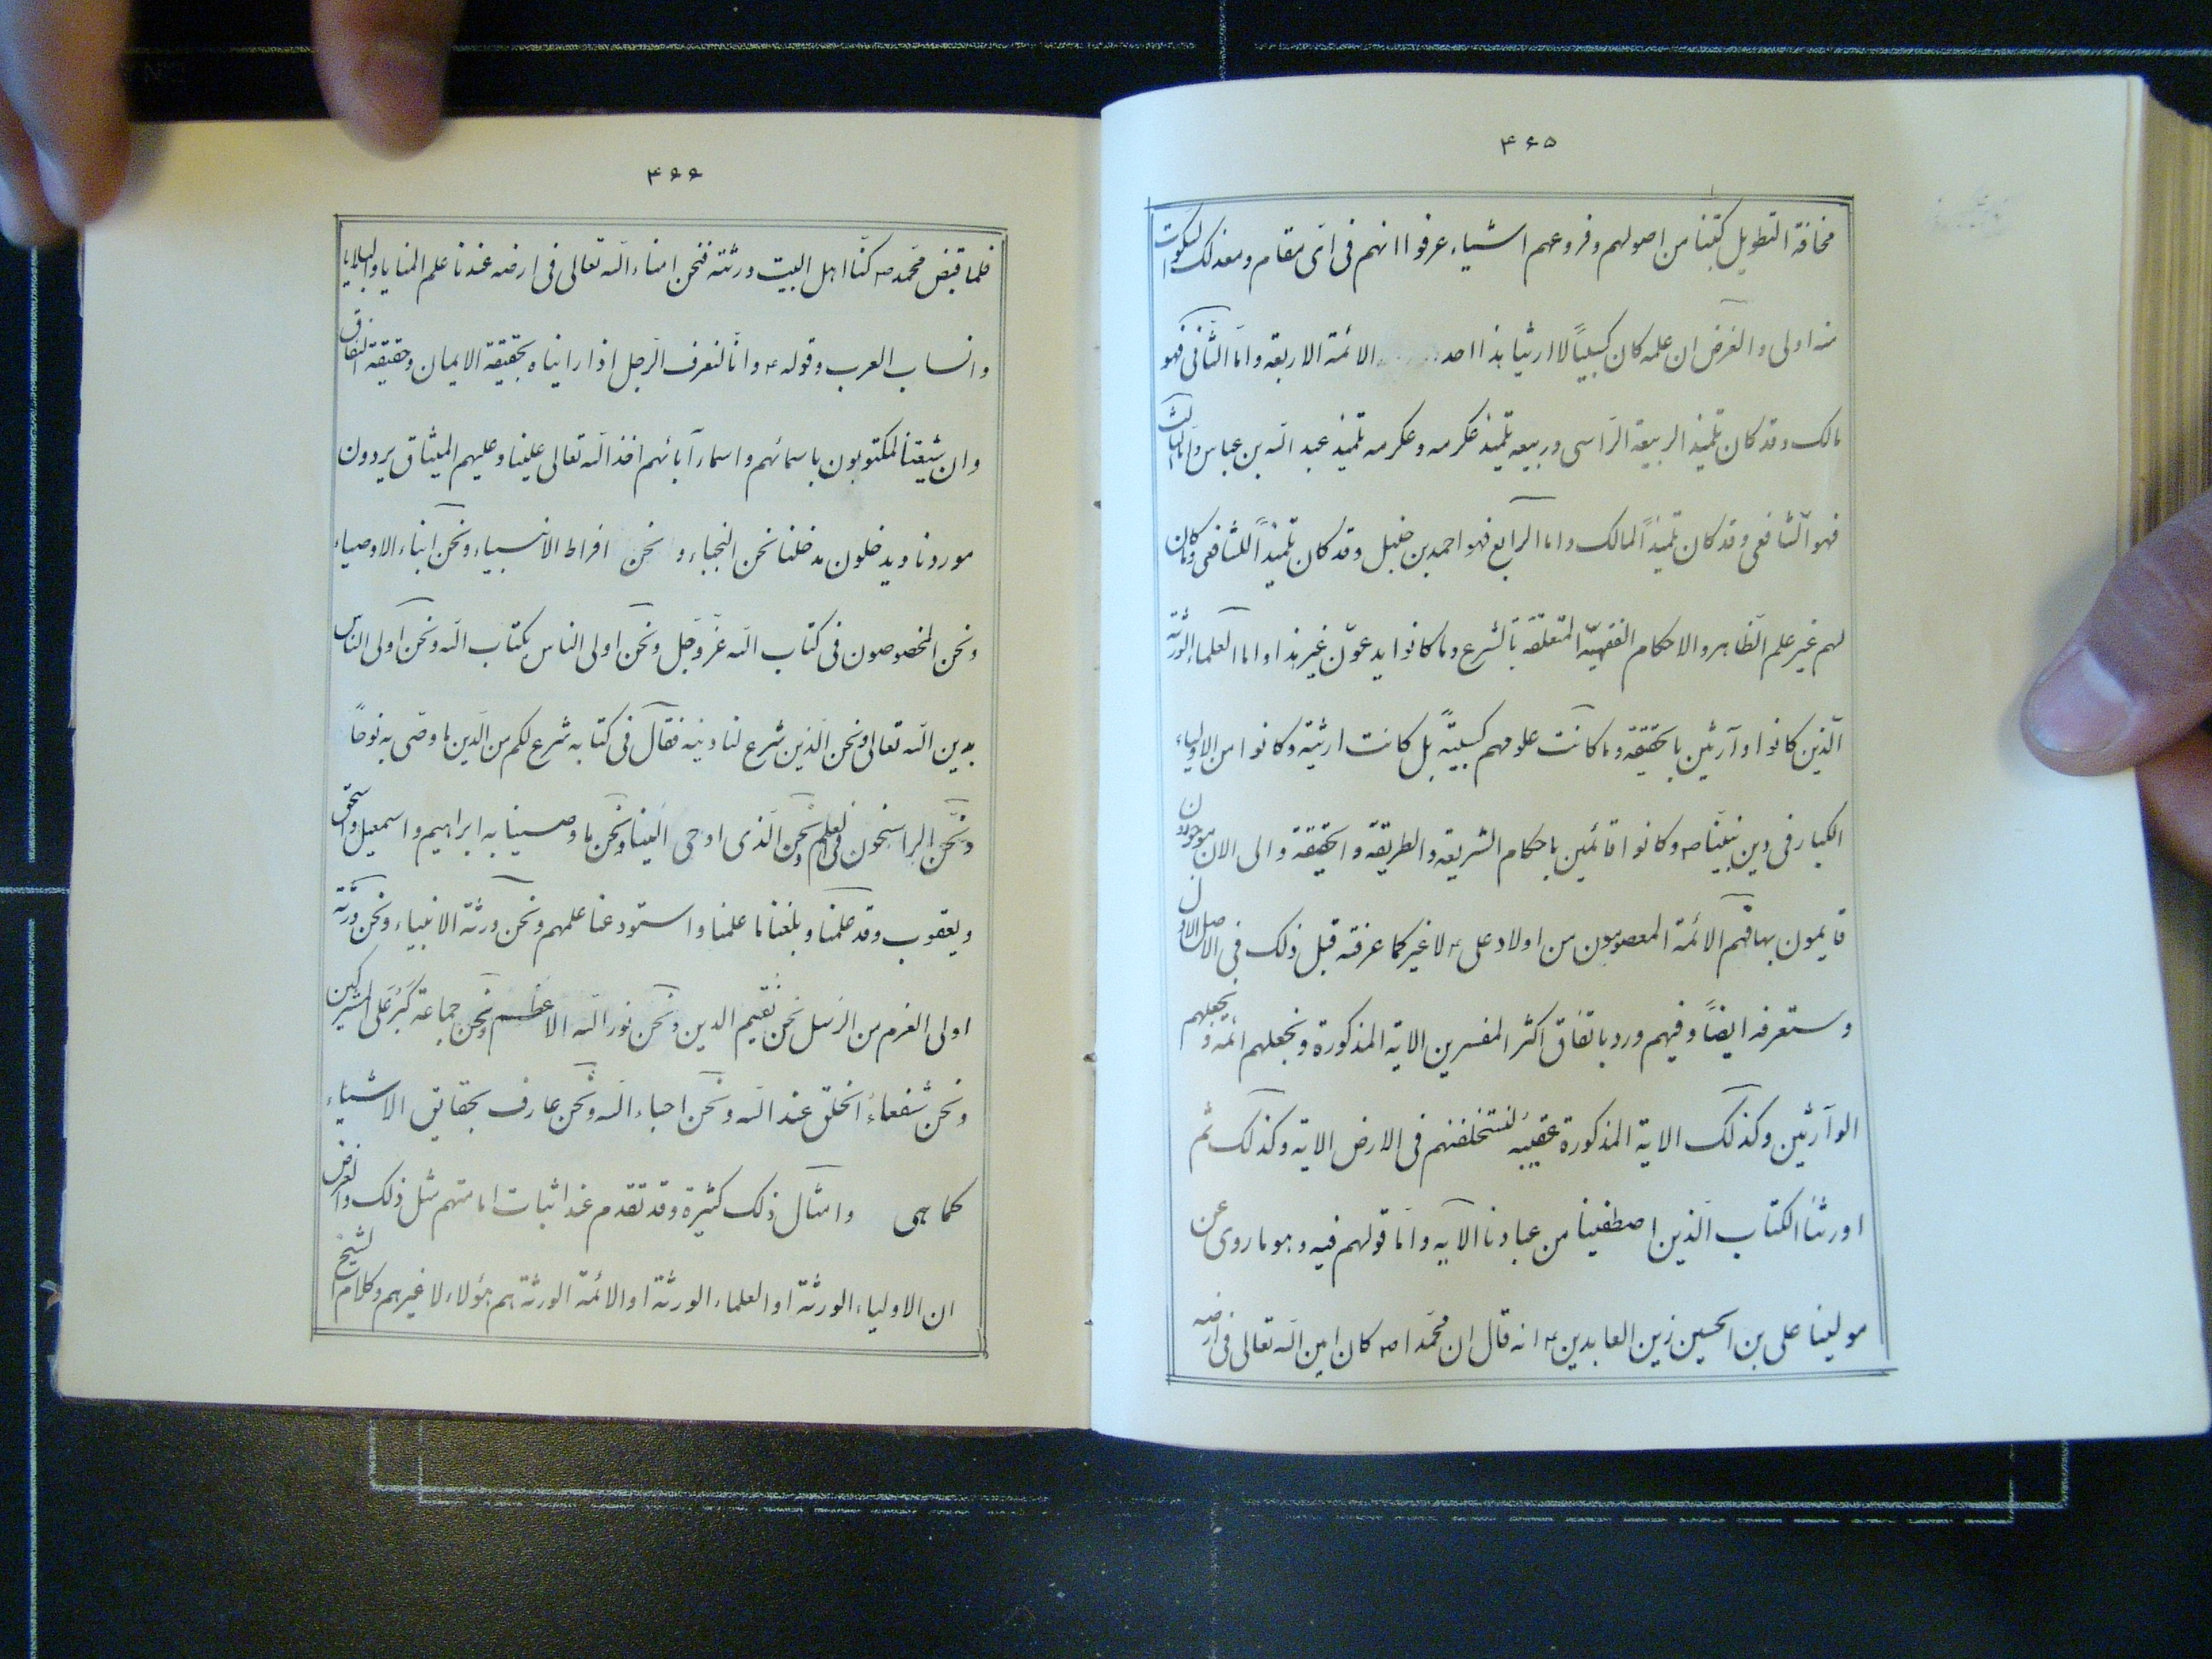 ۴۶۵
مخافة التطویل کتبنا من اصولهم و فروعهم اشیاء عرفوا انهم فی ای مقام و معذلک السکوت
منه اولی و الغرض ان علمه کان کسبیاً لا ارثیا هذا احد الائمة الاربعه و اما الثانی فهو
مالک و قد کان تلمیذ الربیعة الراسی و ربیعه تلمیذ عکرمه و عکرمه تلمیذ عبد الله بن عباس و اما الثالث
فهو الشافعی و قد کان تلمیذاً لمالک و اما الرابع فهو احمد بن حنبل و قد کان تلمیذاً للشافعی و ما کان
لهم غیر علم الظاهر و الاحکام الفقهیة المتعلقة بالشرع و ما کانوا یدعون غیر هذا و اما العلماء الورثة
الذین کانوا وارثین بالحقیقة و ما کانت علومهم کسبیة بل کانت ارثیة و کانوا من الاولیاء
الکبار فی دین نبینا ص و کانوا قائمین باحکام الشریعه و الطریقة و الحقیقة و الی الان موجودون
قایمون بها فهم الائمة المعصومون من اولاد علی ع لا غیر کما عرفته قبل ذلک فی الاصل الاول
و ستعرفه ایضاً و فیهم ورد باتفاق اکثر المفسرین الایة المذکورة و نجعلهم ائمة و نجعلهم
الوارثین و کذلک الایة المذکورة عقیبه لنستخلفنهم فی الارض الایة و کذلک ثم
اورثنا الکتاب الذین اصطفینا من عبادنا الآیه و اما قولهم فیه و هو ما روی عن
مولینا علی بن الحسین زین العابدین ع انه قال ان محمدا ص کان امین الله تعالی فی ارضه
۴۶۶
فلما قبض محمد ص کنا اهل البیت ورثته فنحن امناء الله تعالی فی ارضه عندنا علم المنایا و البلایا
و انساب العرب و قوله ع و انا لنعرف الرجل اذا رایناه بحقیقة الایمان و حقیقة النفاق
و ان شیعتنا لمکتوبون باسمائهم و اسماء آبائهم اخذ الله تعالی علینا و علیهم المیثاق یردون
موردنا و یدخلون مدخلنا نحن النجباء و نحن افراط الانبیاء و نحن ابناء الاوصیاء
و نحن المخصوصون فی کتاب الله عز و جل و نحن اولی الناس بکتاب الله و نحن اولی الناس
بدین الله تعالی و نحن الذین شرع لنا دینه فقال فی کتابه شرع لکم من الدین ما وصی به نوحاً
و نحن الراسخون فی العلم و نحن الذی اوحی الینا و نحن ما وصینا به ابراهیم و اسمعیل و اسحق
و یعقوب و قد علمنا و بلغنا ما علمنا و استودعنا علمهم و نحن ورثة الانبیاء و نحن ورثة
اولی العزم من الرسل نحن نقیم الدین و نحن نور الله الاعظم و نحن جماعة کبر علی المشرکین
و نحن شفعاء الخلق عند الله و نحن احباء الله و نحن عارف بحقایق الاشیاء
کما هی و امثال ذلک کثیرة و قد تقدم عند اثبات امامتهم مثل ذلک و الغرض
ان الاولیاء الورثة او العلماء الورثة او الائمة الورثة هم هؤلاء لا غیرهم و کلام الشیخ